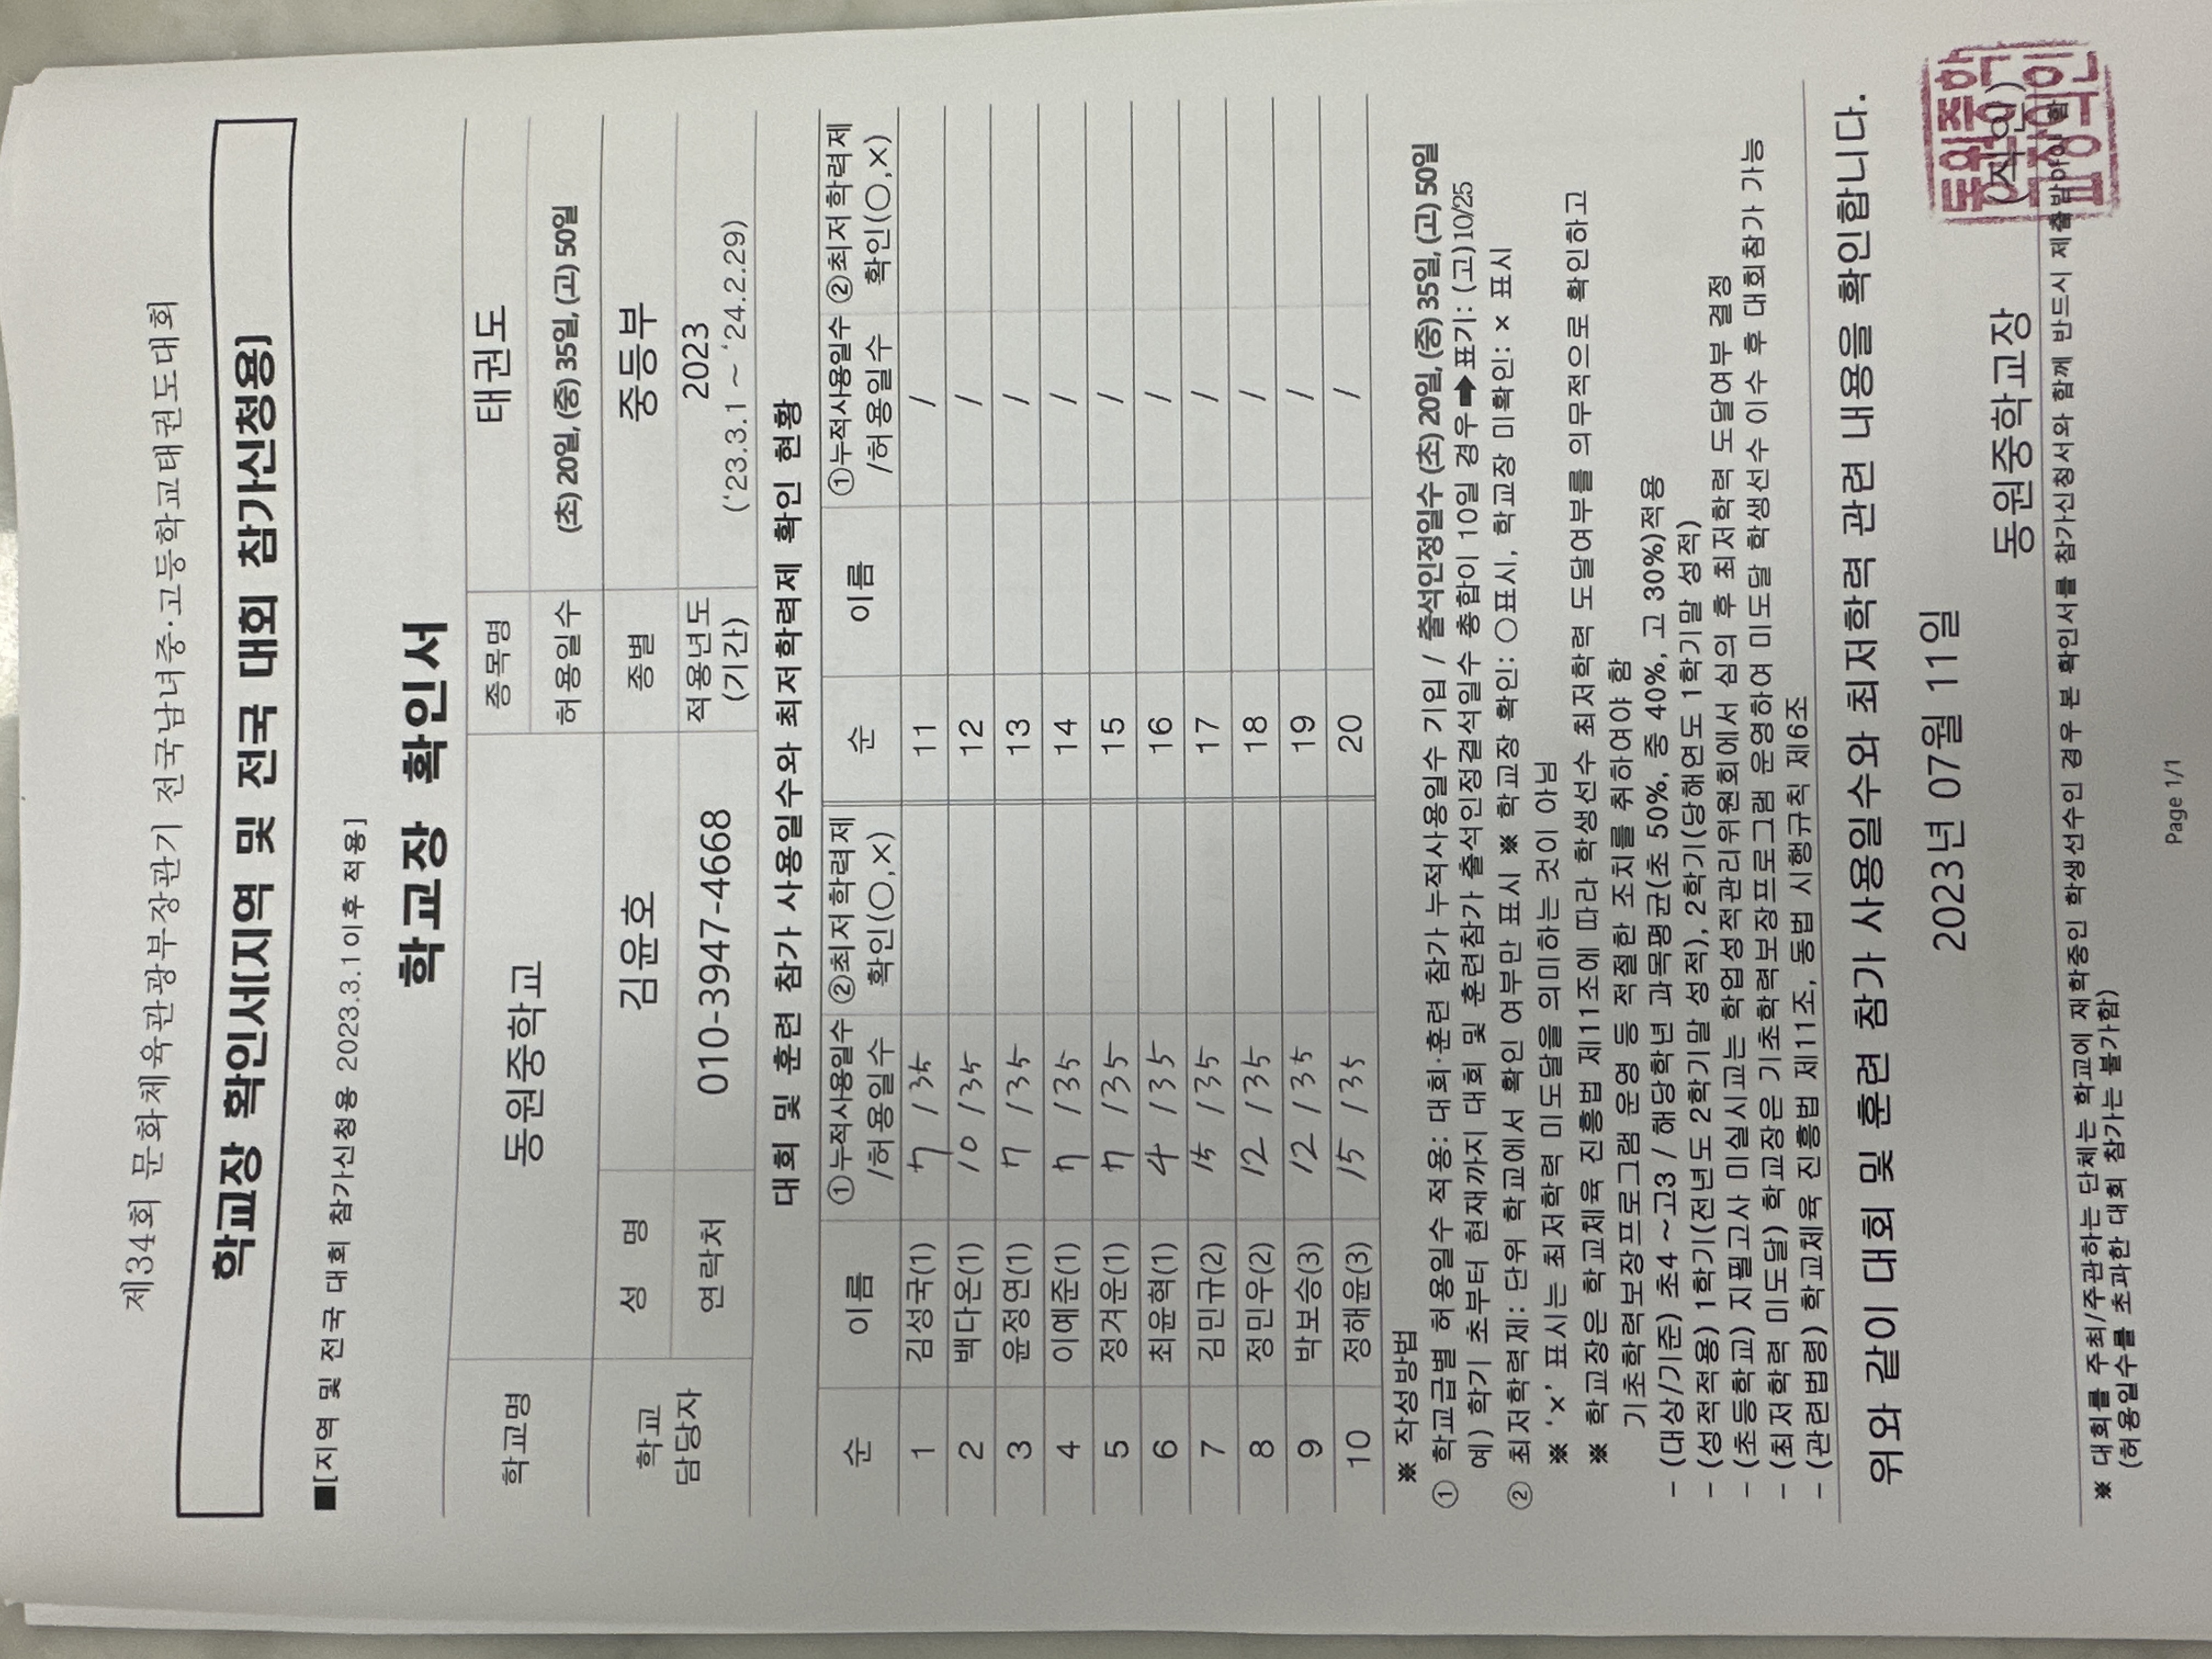 제34회 문화체육관광부장관기 전국남녀중·고등학교태권도대회
학교장 확인서(지역 및 전국 대회 참가신청용)
■[지역 및 전국 대회 참가신청용 2023.3.1이후 적용]
학교장 확인서
학교명 동원중학교 종목명 태권도
허용일수 (초) 20일, (중) 35일, (고) 50일
학교 담당자 성 명 김윤호 종별 중등부
연락처 010-3947-4668 적용년도 (기간) 2023 ('23.3.1 ~ '24.2.29)
대회 및 훈련 참가 사용일수와 최저학력제 확인 현황
순 이름 ①누적사용일수 /허용일수 ②최저학력제 확인(○,×) 순 이름 ①누적사용일수 /허용일수 ②최저학력제 확인(○,×)
1 김성국(1) 7 /35 11 /
2 백다온(1) 10 /35 12 /
3 윤정연(1) 7 /35 13 /
4 이예준(1) 7 /35 14 /
5 정겨운(1) 7 /35 15 /
6 최윤혁(1) 4 /35 16 /
7 김민규(2) 15 /35 17 /
8 정민우(2) 12 /35 18 /
9 박보승(3) 12 /35 19 /
10 정해윤(3) 15 /35 20 /
※ 작성방법
① 학교급별 허용일수 적용: 대회·훈련 참가 누적사용일수 기입 / 출석인정일수 (초) 20일, (중) 35일, (고) 50일
예) 학기 초부터 현재까지 대회 및 훈련참가 출석인정결석일수 총합이 10일 경우 ➡표기: (고)10/25
② 최저학력제: 단위 학교에서 확인 여부만 표시 ※ 학교장 확인: ○표시, 학교장 미확인: × 표시
※ '×' 표시는 최저학력 미도달을 의미하는 것이 아님
※ 학교장은 학교체육 진흥법 제11조에 따라 학생선수 최저학력 도달여부를 의무적으로 확인하고
기초학력보장프로그램 운영 등 적절한 조치를 취하여야 함
- (대상/기준) 초4 ~고3 / 해당학년 과목평균(초 50%, 중 40%, 고 30%)적용
- (성적적용) 1학기(전년도 2학기말 성적), 2학기(당해연도 1학기말 성적)
- (초등학교) 지필고사 미실시교는 학업성적관리위원회에서 심의 후 최저학력 도달여부 결정
- (최저학력 미도달) 학교장은 기초학력보장프로그램 운영하여 미도달 학생선수 이수 후 대회참가 가능
- (관련법령) 학교체육 진흥법 제11조, 동법 시행규칙 제6조
위와 같이 대회 및 훈련 참가 사용일수와 최저학력 관련 내용을 확인합니다.
2023년 07월 11일
동원중학교장 (직인)
※ 대회를 주최/주관하는 단체는 학교에 재학중인 학생선수인 경우 본 확인서를 참가신청서와 함께 반드시 제출받아야 함
(허용일수를 초과한 대회 참가는 불가함)
Page 1/1